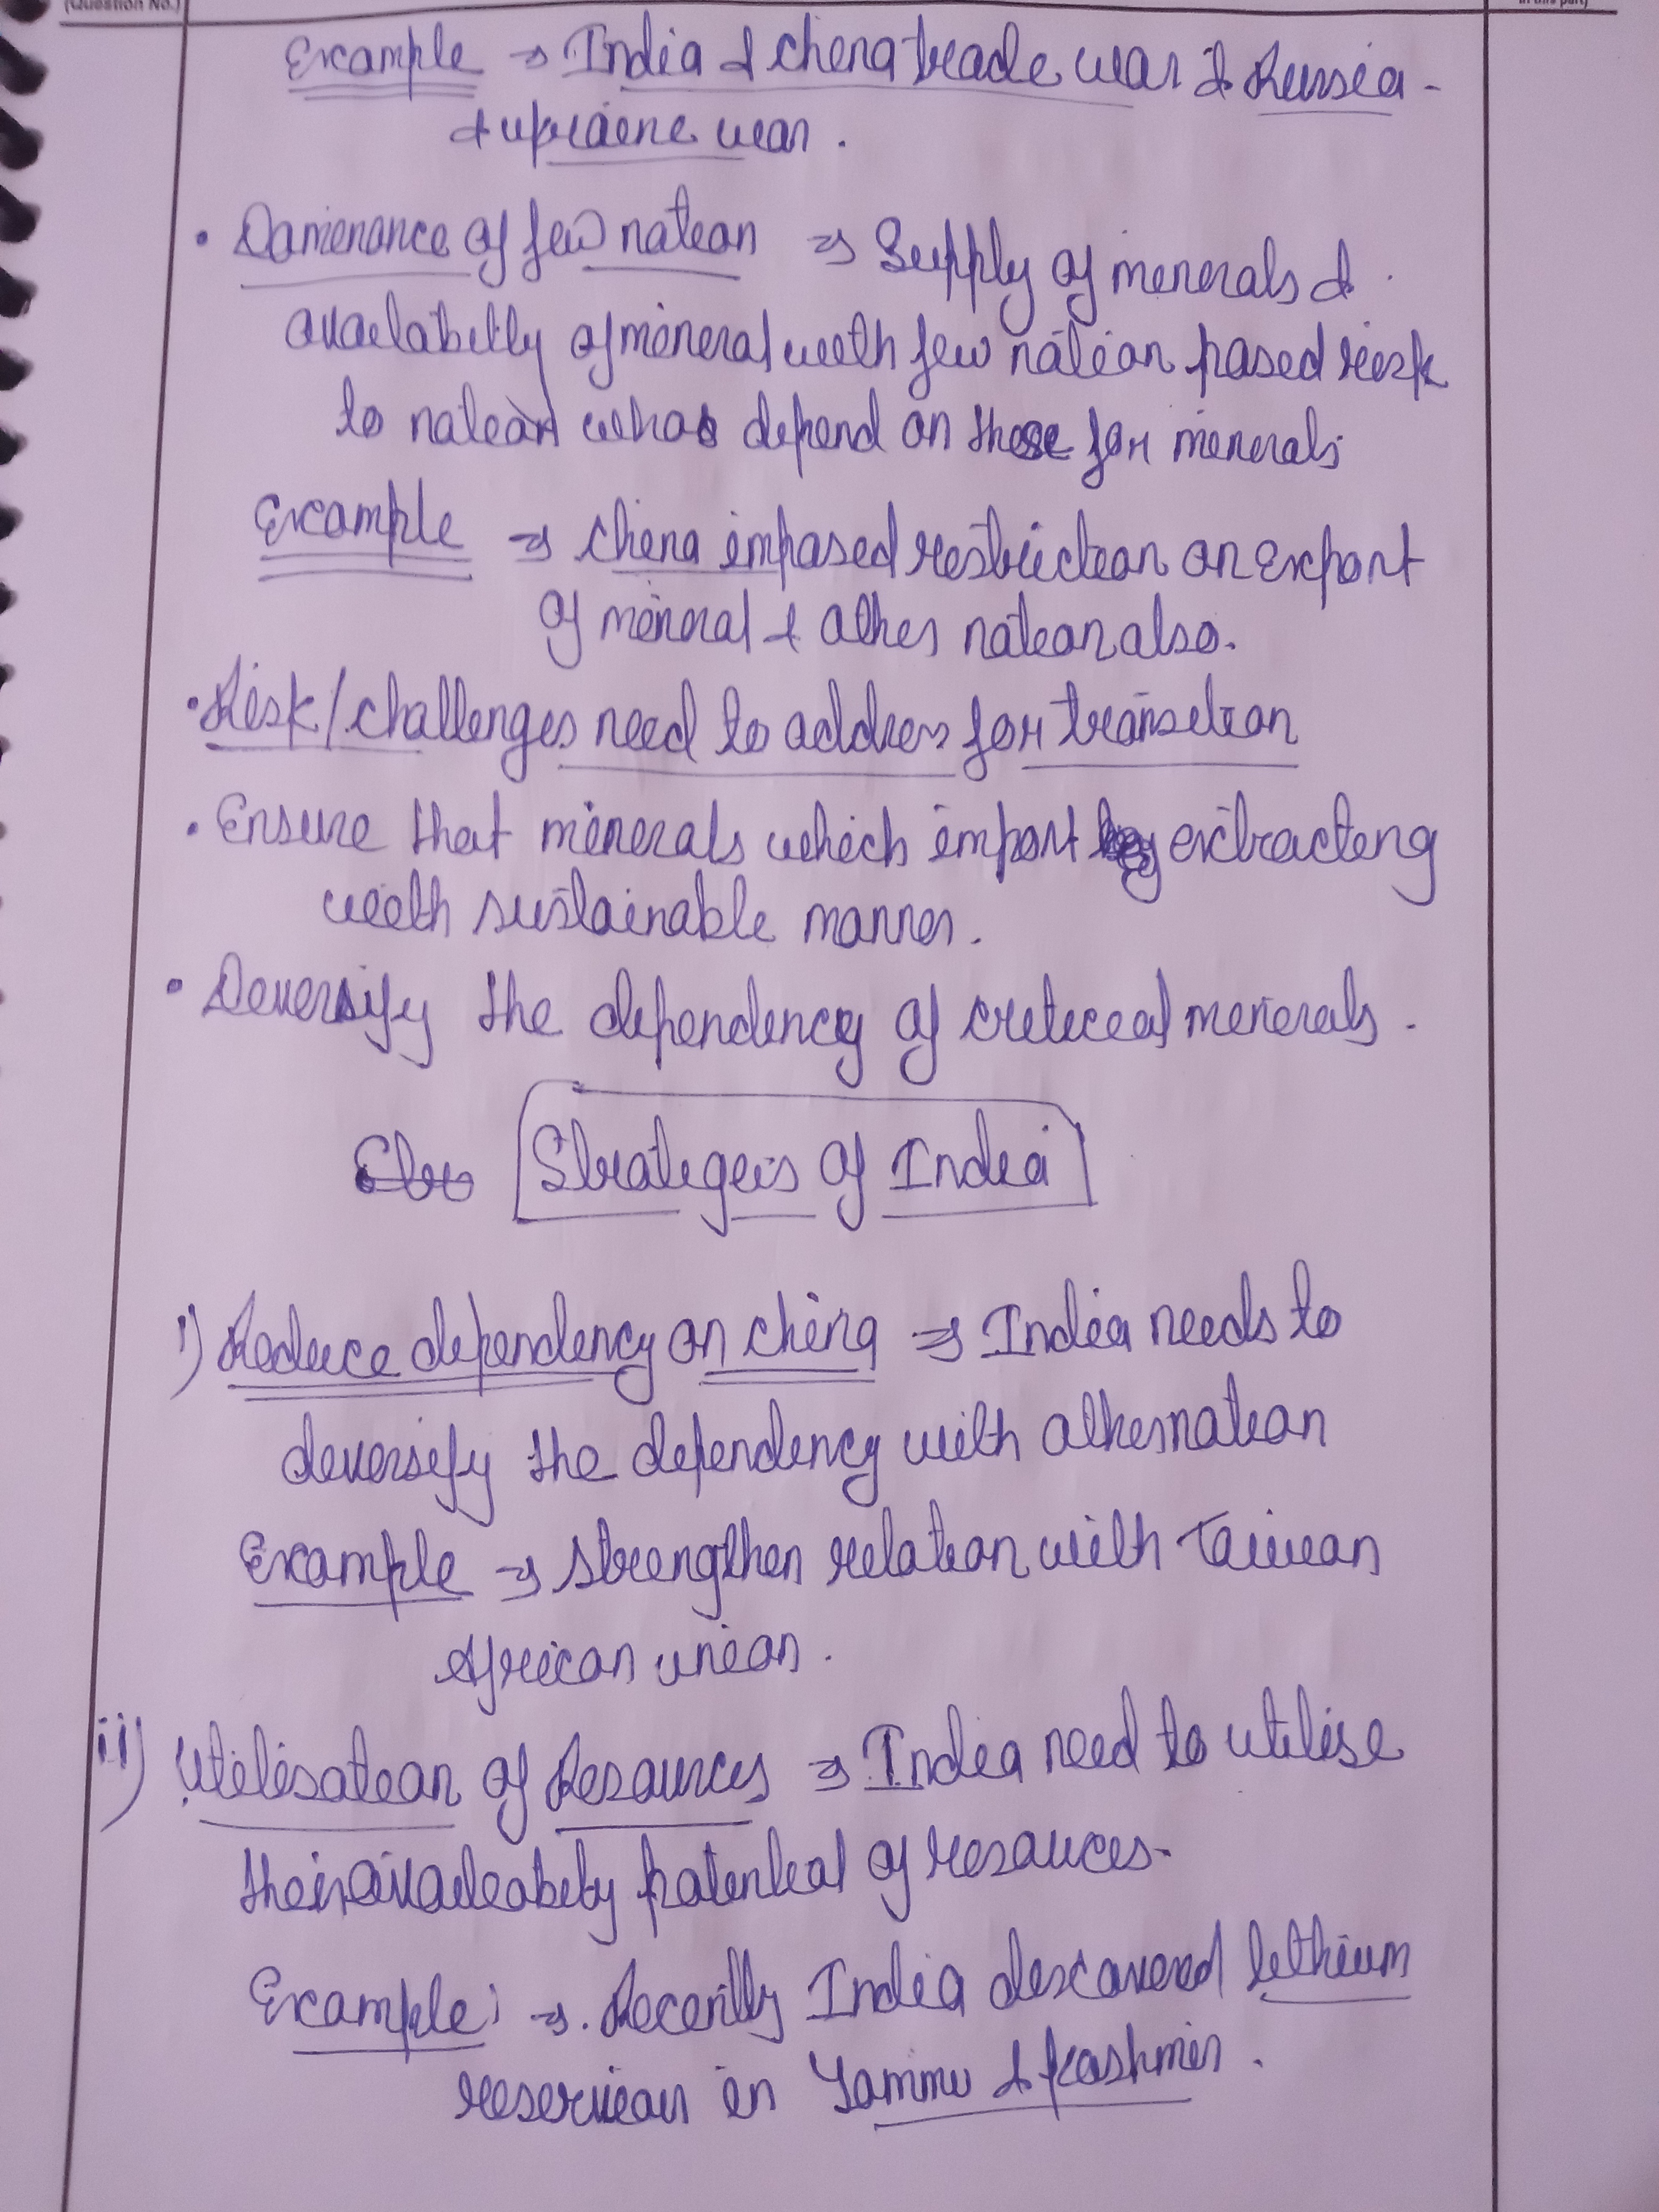 (Question No.)
in this part)
Example ⇒ India & China trade war & Russia -
& Ukraine war.
• Dominance of few nation ⇒ Supply of minerals &
availability of mineral with few nation posed risk
to nation who depend on those for minerals
Example ⇒ China imposed restriction on export
of mineral & other nation also.
• Risk/challenges need to address for transition
• Ensure that minerals which import by extracting
with sustainable manner.
• Diversify the dependency of critical minerals.
Strategeis of India
i) Reduce dependency on China ⇒ India needs to
diversify the dependency with other nation
Example ⇒ strengthen relation with Taiwan
African union.
ii) Utilisation of Resources ⇒ India need to utilise
their potential of resources.
Example: ⇒ Recently India discovered lithium
in Jammu & Kashmir.